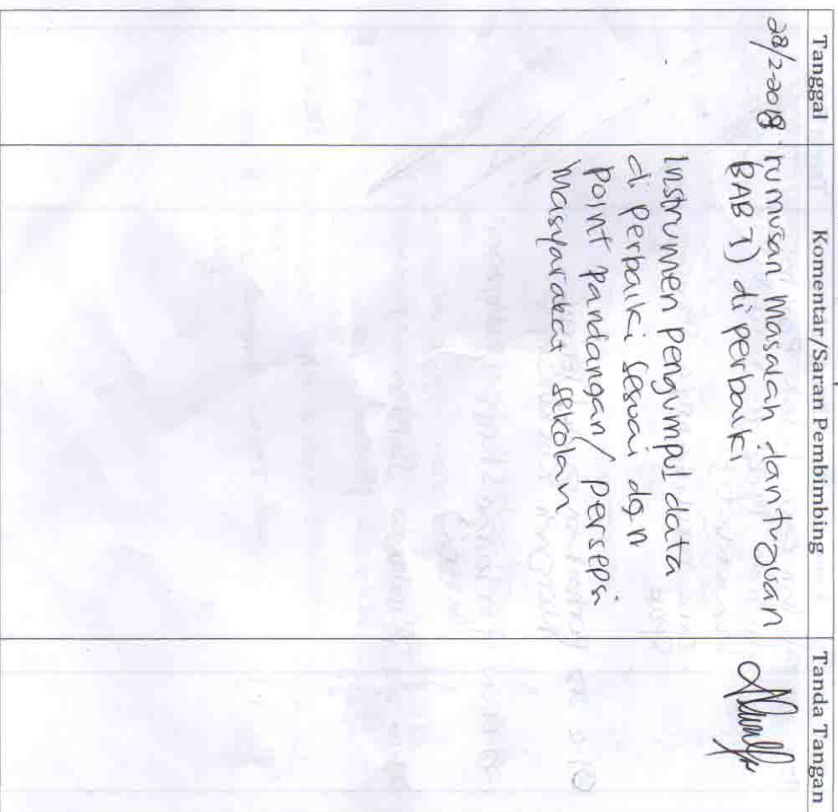 Tanggal Komentar/Saran Pembimbing Tanda Tangan
28/2-2018 rumusan masalah dan tujuan
BAB 1) di perbaiki
Instrumen pengumpul data
di perbaiki sesuai dgn
point pandangan/ persepsi
Masyarakat sekolah